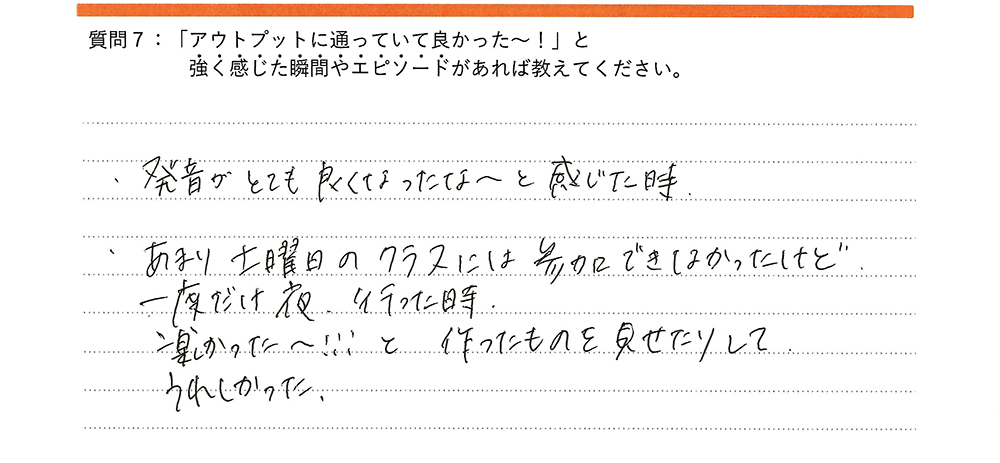 質問7：「アウトプットに通っていて良かった〜！」と
強く感じた瞬間やエピソードがあれば教えてください。
・発音がとても良くなったな〜と感じた時.
・あまり土曜日のクラスには参加できなかったけど.
一度だけ夜.行った時.
楽しかった〜!!!と 作ったものを見せたりして.
うれしかった.